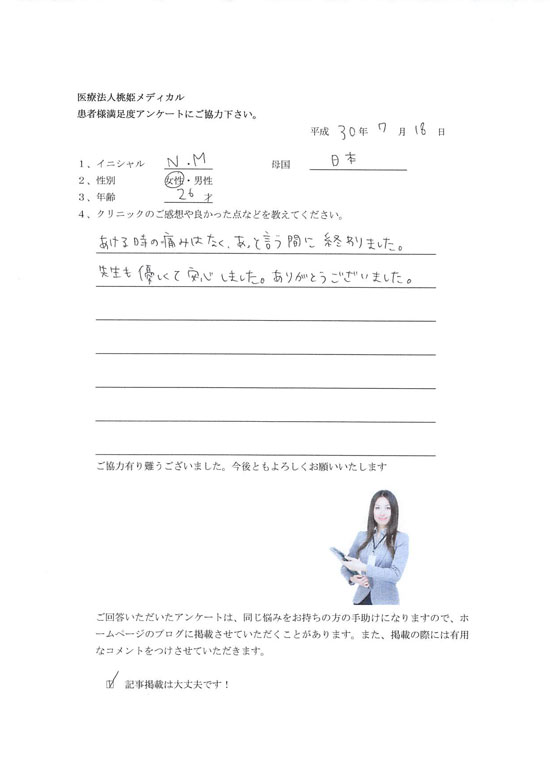 医療法人桃姫メディカル
患者様満足度アンケートにご協力下さい。
平成 30年 7 月 18 日
1、イニシャル N.M 母国 日本
2、性別 女性・男性
3、年齢 26 才
4、クリニックのご感想や良かった点などを教えてください。
あける時の痛みはなく、あっと言う間に終わりました。
先生も優しくて安心しました。ありがとうございました。
ご協力有り難うございました。今後ともよろしくお願いいたします
ご回答いただいたアンケートは、同じ悩みをお持ちの方の手助けになりますので、ホ
ームページのブログに掲載させていただくことがあります。また、掲載の際には有用
なコメントをつけさせていただきます。
☑ 記事掲載は大丈夫です！